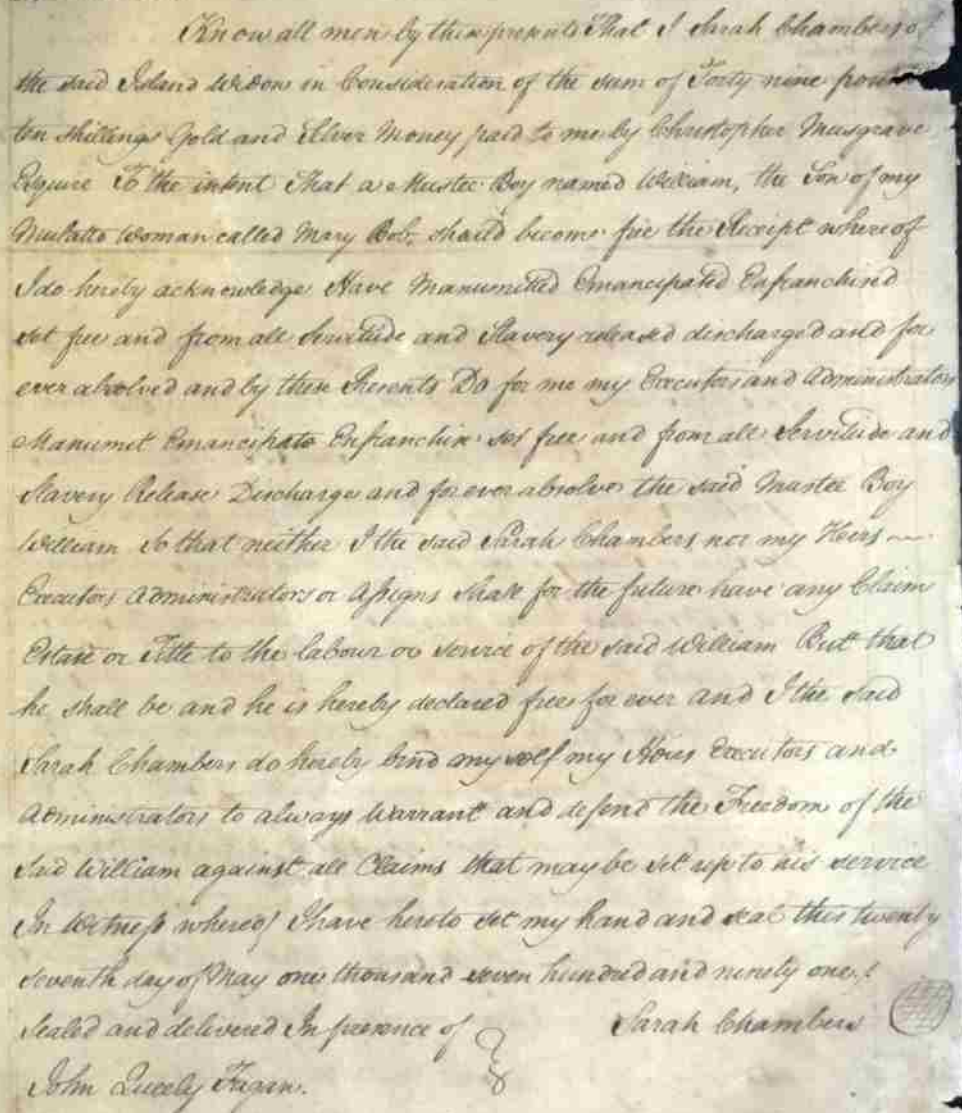 Know all men by these presents That I Sarah Chambers of
the said Island Widow in Consideration of the sum of Forty nine
ten shillings Gold and Silver Money paid to me by Christopher Musgrave
Esquire To the intent That a Mustee Boy named William, the Son of my
Mulatto Woman called Mary Bob, should become free the Receipt whereof
I do hereby acknowledge Have Manumitted Emancipated Enfranchised
set free and from all Servitude and Slavery released discharged and for
ever absolved and by these Presents Do for me my Executors and Administrators
Manumit Emancipate Enfranchise set free and from all Servitude and
Slavery Release Discharge and for ever absolve the said Mustee Boy
William So that neither I the said Sarah Chambers nor my Heirs
Executors Administrators or Assigns shall for the future have any Claim
Estate or Title to the labour or service of the said William But that
he shall be and he is hereby declared free for ever and I the said
Sarah Chambers do hereby bind myself my Heirs Executors and
Administrators to always Warrant and defend the Freedom of the
said William against all Claims that may be set up to his service
In Witness whereof I have hereto set my hand and seal this twenty
seventh day of May one thousand seven hundred and ninety one.
Sealed and delivered In presence of Sarah Chambers
John Fagan.